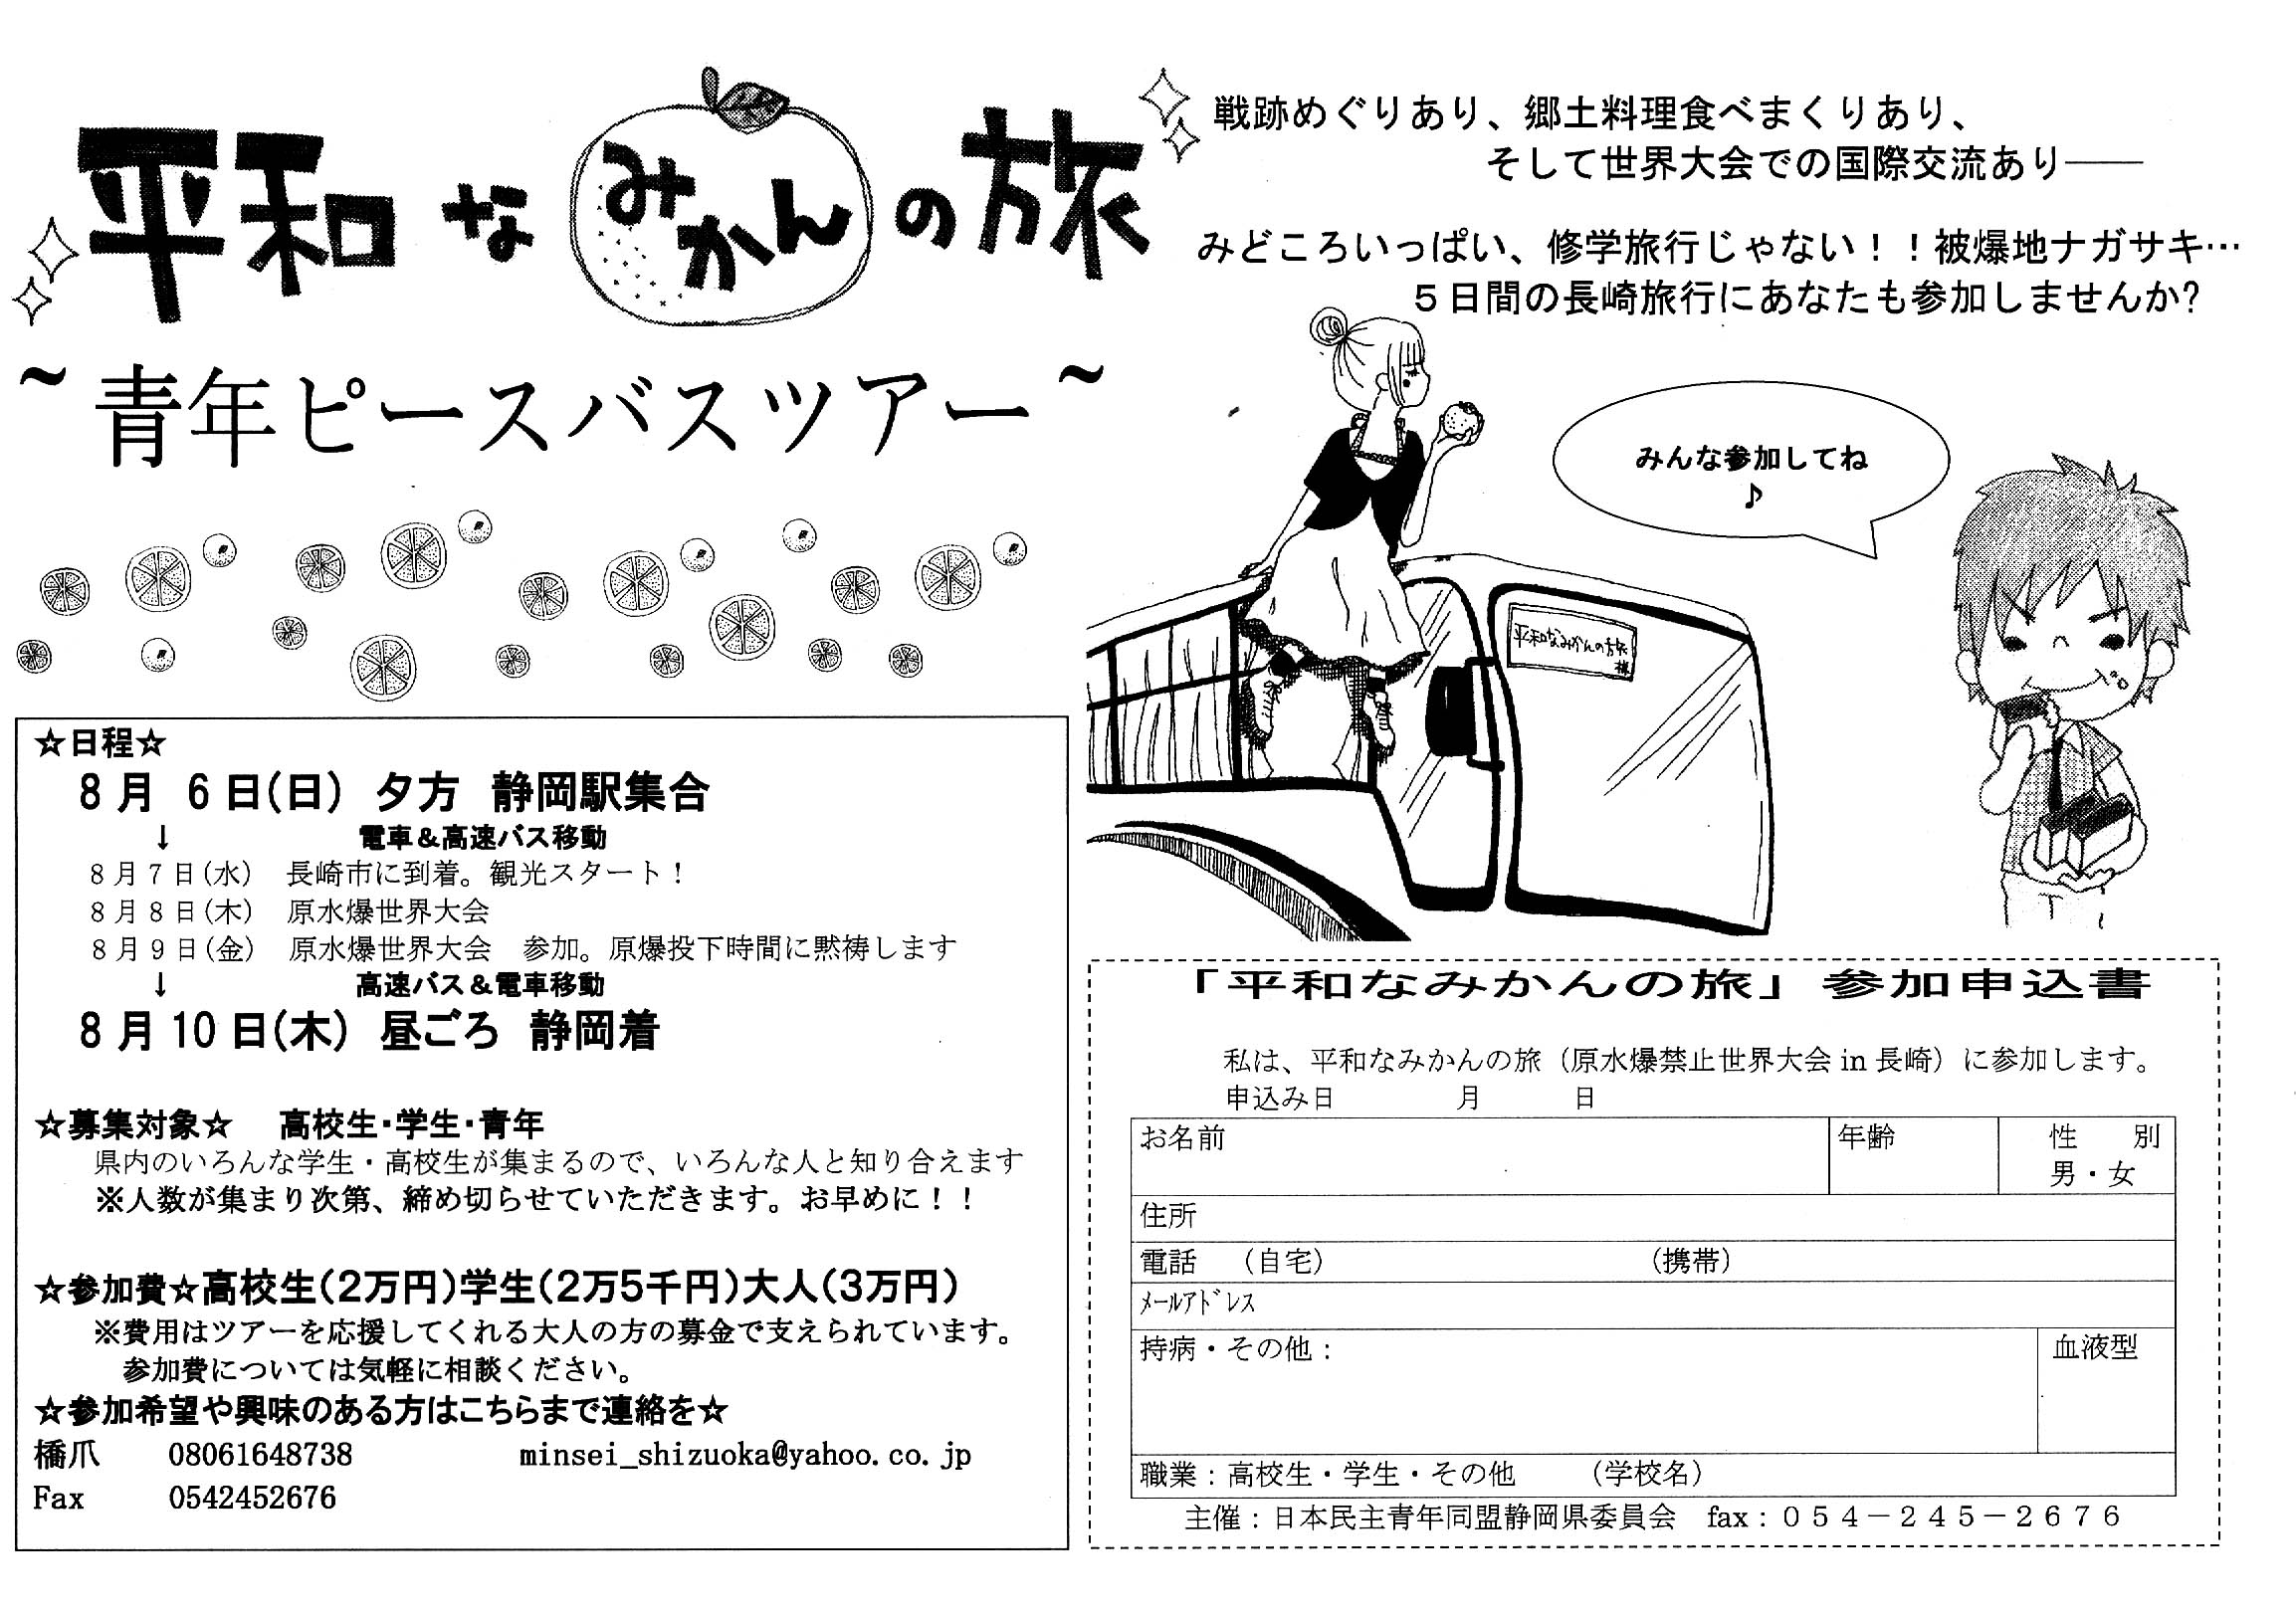 平和なみかんの旅
~青年ピースバスツアー~
戦跡めぐりあり、郷土料理食べまくりあり、
そして世界大会での国際交流あり――
みどころいっぱい、修学旅行じゃない！！被爆地ナガサキ…
５日間の長崎旅行にあなたも参加しませんか?
みんな参加してね
♪
平和なみかんの旅
様
☆日程☆
8月 6日(日) 夕方 静岡駅集合
↓ 電車＆高速バス移動
8月7日(水) 長崎市に到着。観光スタート！
8月8日(木) 原水爆世界大会
8月9日(金) 原水爆世界大会 参加。原爆投下時間に黙祷します
↓ 高速バス＆電車移動
8月10日(木) 昼ごろ 静岡着
☆募集対象☆ 高校生・学生・青年
県内のいろんな学生・高校生が集まるので、いろんな人と知り合えます
※人数が集まり次第、締め切らせていただきます。お早めに！！
☆参加費☆高校生(2万円)学生(2万5千円)大人(3万円)
※費用はツアーを応援してくれる大人の方の募金で支えられています。
参加費については気軽に相談ください。
☆参加希望や興味のある方はこちらまで連絡を☆
橋爪 08061648738 minsei_shizuoka@yahoo.co.jp
Fax 0542452676
「平和なみかんの旅」参加申込書
私は、平和なみかんの旅（原水爆禁止世界大会 in 長崎）に参加します。
申込み日 月 日
お名前 年齢 性 別
男・女
住所
電話 （自宅） （携帯）
ﾒｰﾙｱﾄﾞﾚｽ
持病・その他： 血液型
職業：高校生・学生・その他 （学校名）
主催：日本民主青年同盟静岡県委員会 fax：０５４－２４５－２６７６